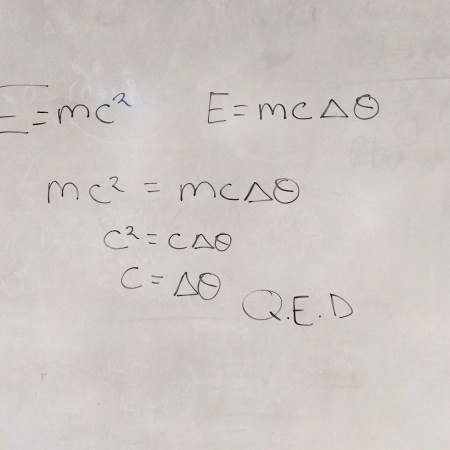 E=mc² E=mcΔθ
mc² = mcΔθ
c²=cΔθ
c=Δθ
Q.E.D